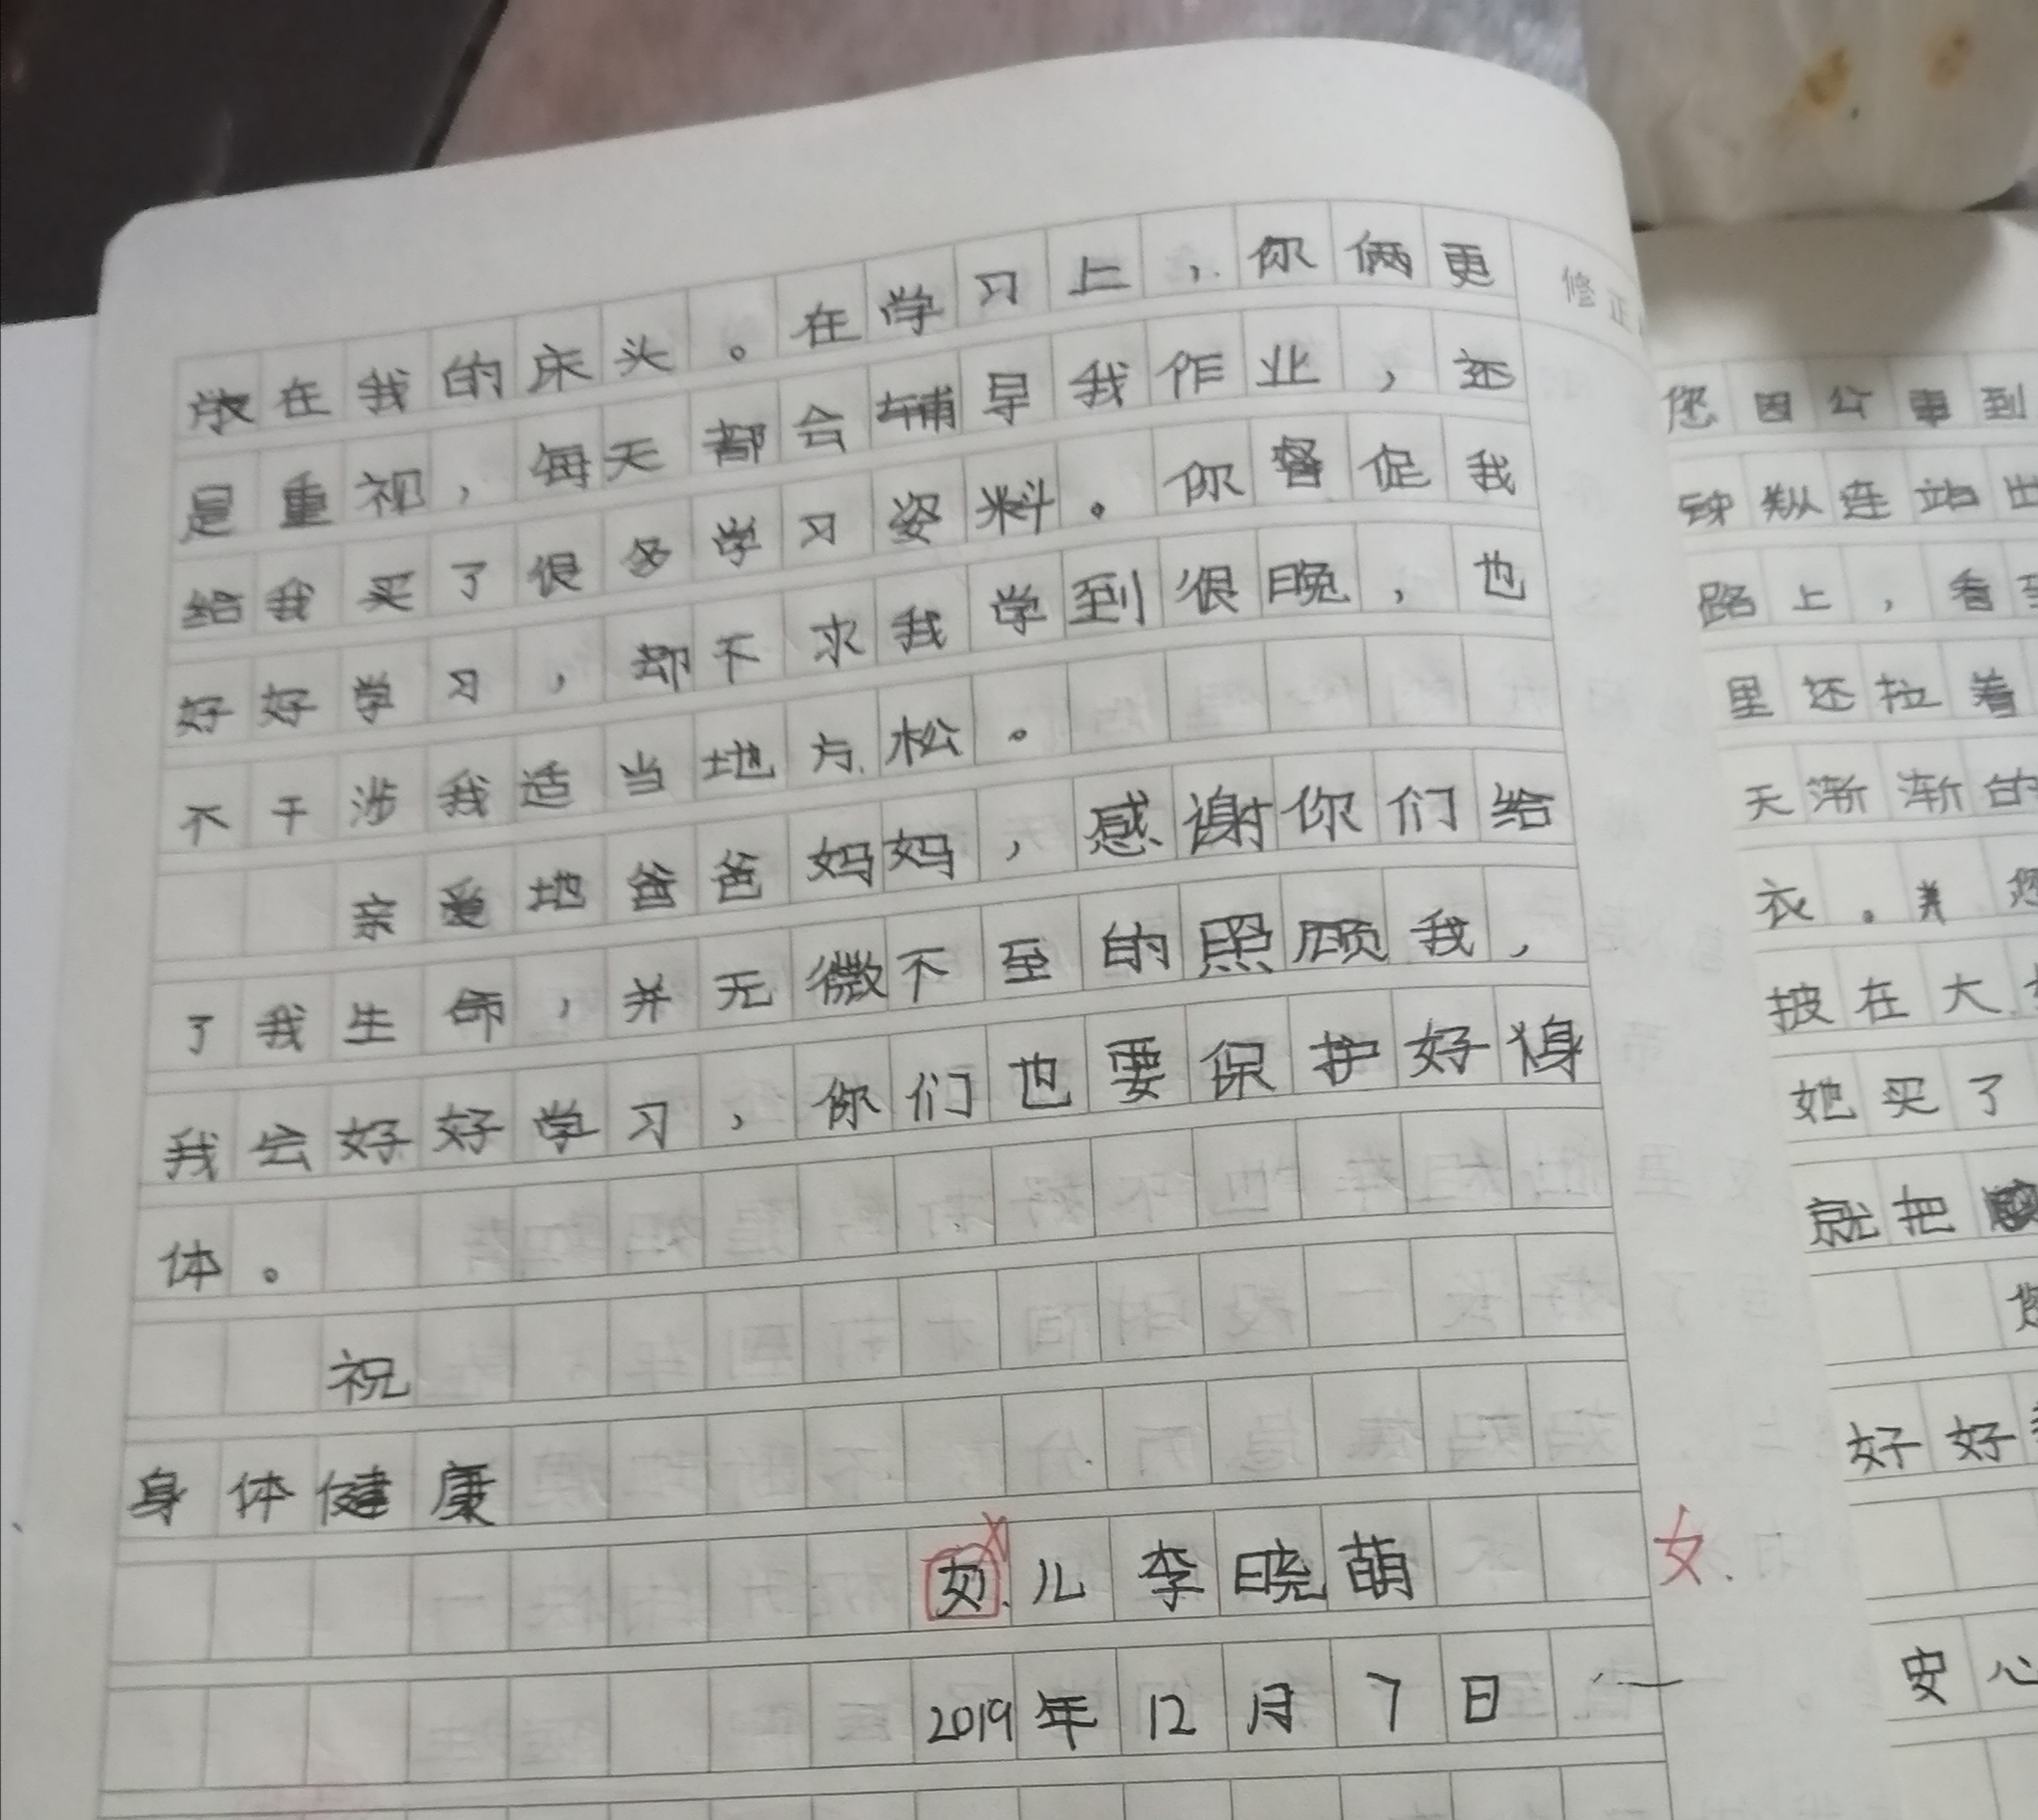 放在我的床头。在学习上，你俩更
是重视，每天都会辅导我作业，还
给我买了很多学习姿料。你督促我
好好学习，却不求我学到很晚，也
不干涉我适当地方松。
亲爱地爸爸妈妈，感谢你们给
了我生命，并无微不至的照顾我，
我会好好学习，你们也要保护好身
体。
祝
身体健康
女儿李晓萌
女
2019年12月7日
修正
您因公事到
钟 连站出
路上，看
里还拉着
天渐渐的
衣。 您
披在大
她买了
就把
您
好好
安心